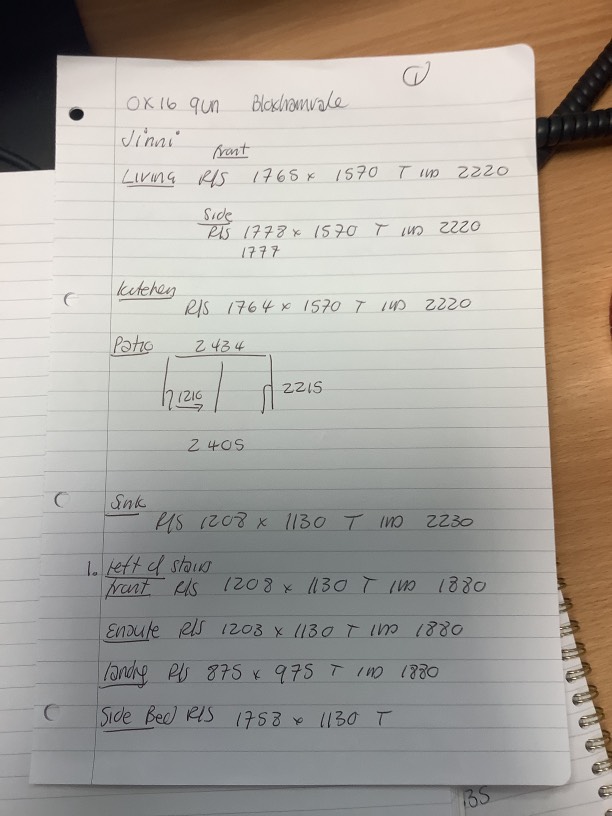 1
OX16 9un Bloxhamvale
Jinni
front
Living R/S 1765 x 1570 T IND 2220
Side
R/S 1778 x 1570 T IND 2220
1777
Kitchen
R/S 1764 x 1570 T IND 2220
Patio 2434
1216 2215
2405
Sink
R/S 1208 x 1130 T IND 2230
1. Left of stairs
front R/S 1208 x 1130 T IND 1880
Ensuite R/S 1203 x 1130 T IND 1880
Landing R/S 875 x 975 T IND 1880
Side Bed R/S 1758 x 1130 T
135